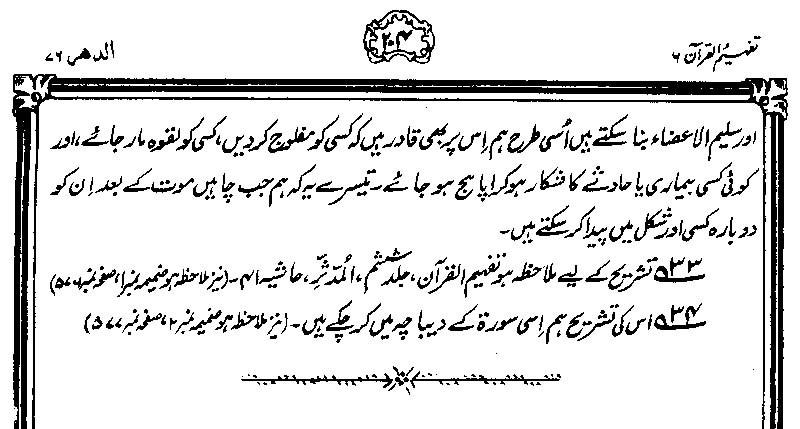 تفہیم القرآن ۶
۲۰۴
الدھر ۷۶
اور سلیم الاعضاء بنا سکتے ہیں اُسی طرح ہم اِس پر بھی قادر ہیں کہ کسی کو مفلوج کر دیں، کسی کو لقوہ مار جائے، اور
کوئی کسی بیماری یا حادثے کا شکار ہو کر اپاہج ہو جائے۔ تیسرے یہ کہ ہم جب چاہیں موت کے بعد اِن کو
دوبارہ کسی اور شکل میں پیدا کر سکتے ہیں۔
۳۳ تشریح کے لیے ملاحظہ ہو تفہیم القرآن، جلد ششم، المدّثر، حاشیہ ۴۱۔ (نیز ملاحظہ ہو ضمیمہ نمبر ۱، صفحہ نمبر ۵۷۶)
۳۴ اس کی تشریح ہم اِسی سورۃ کے دیباچہ میں کر چکے ہیں۔ (نیز ملاحظہ ہو ضمیمہ نمبر ۲، صفحہ نمبر ۵۷۷)